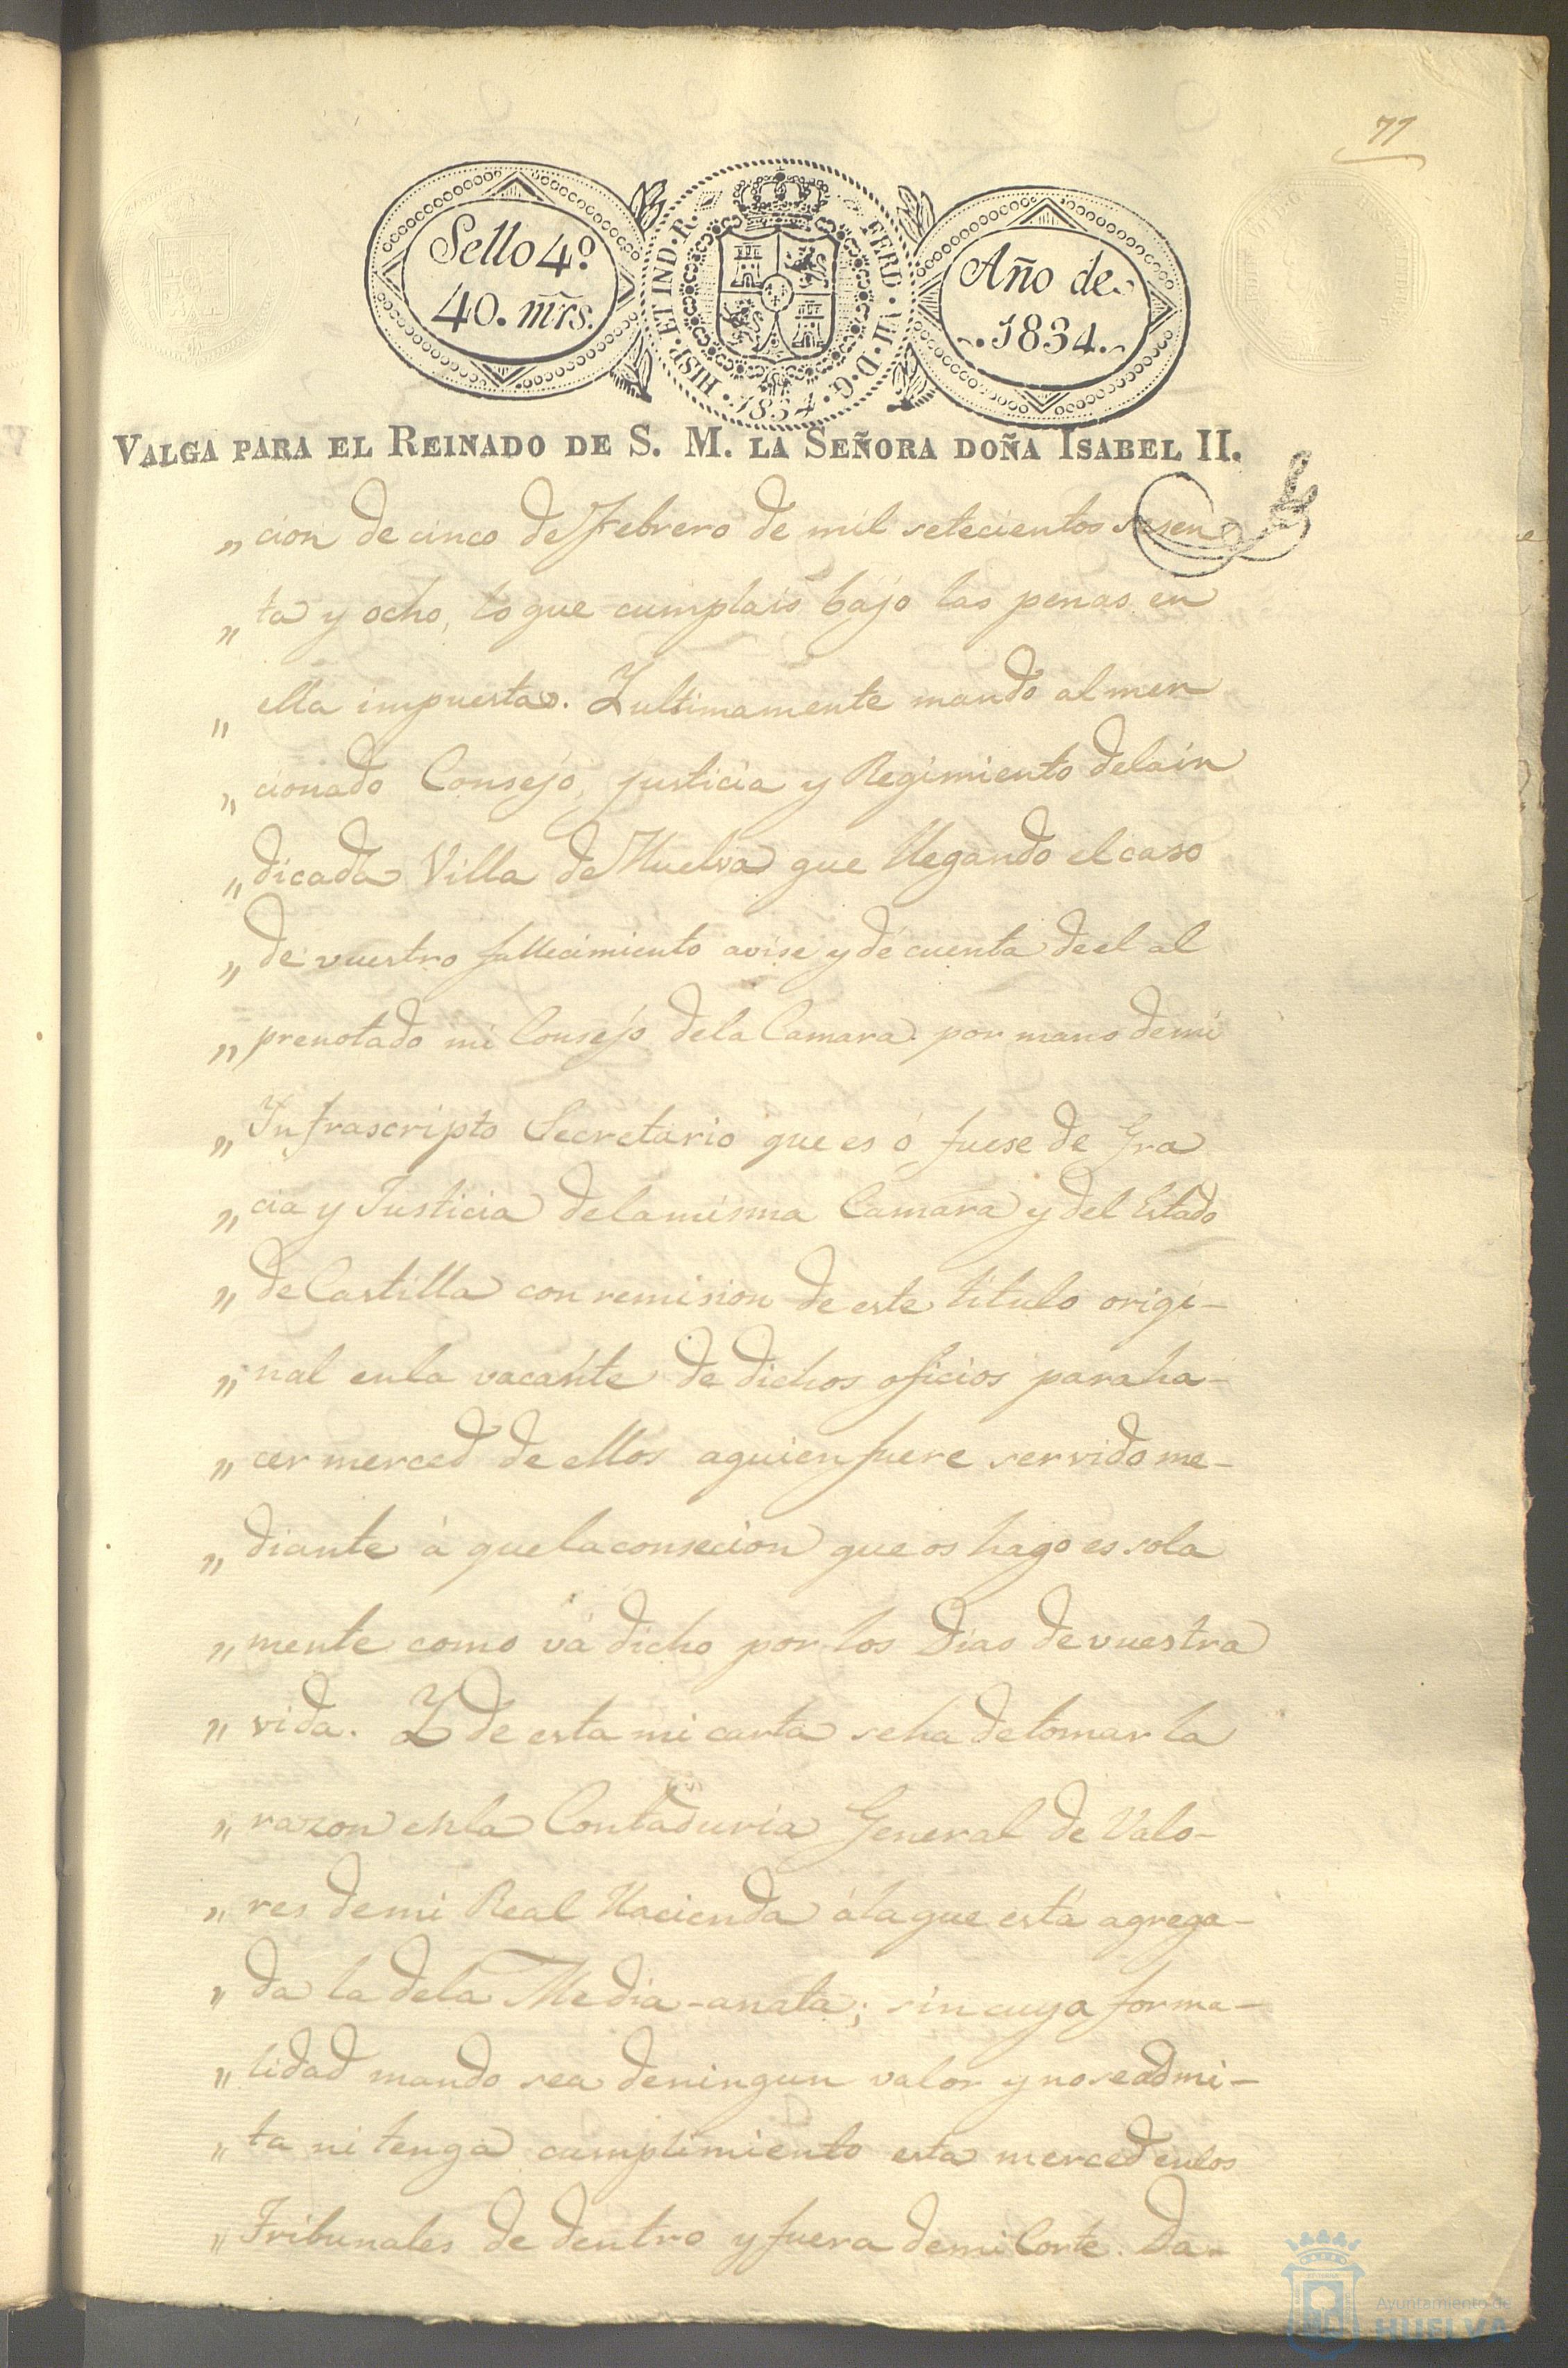 77
Sello 4º
40. mrs.
HISP. ET IND. R.
FERD. VII. D. G.
1834
Año de
1834.
VALGA PARA EL REINADO DE S. M. LA SEÑORA DOÑA ISABEL II.
„ cion de cinco de Febrero de mil setecientos sesen
„ ta y ocho, lo que cumplais bajo las penas en
„ ella impuestas. Y ultimamente mando al men
„ cionado Consejo, justicia y Regimiento dela in
„ dicada Villa de Huelva que llegando el caso
„ de vuestro fallecimiento avise y dé cuenta de el al
„ prenotado mi Consejo dela Camara por mano demi
„ Infrascripto Secretario que es ó fuese de Gra
„ cia y Justicia delamisma Camara y del Estado
„ de Castilla con remision de este titulo origi-
„ nal enla vacante de dichos oficios para ha-
„ cer merced de ellos aquien fuere servido me-
„ diante á que la consecion que os hago es sola
„ mente como vá dicho por los Dias de vuestra
„ vida. Y de esta mi carta se ha de tomar la
„ razon enla Contaduria General de Valo-
„ res demi Real Hacienda álaque está agrega-
„ da la dela Media-anata; sin cuya forma-
„ lidad mando sea deningun valor y no se admi-
„ ta ni tenga cumplimiento esta merced enlos
„ Tribunales de dentro y fuera demi Corte. Da-
Ayuntamiento de
HUELVA